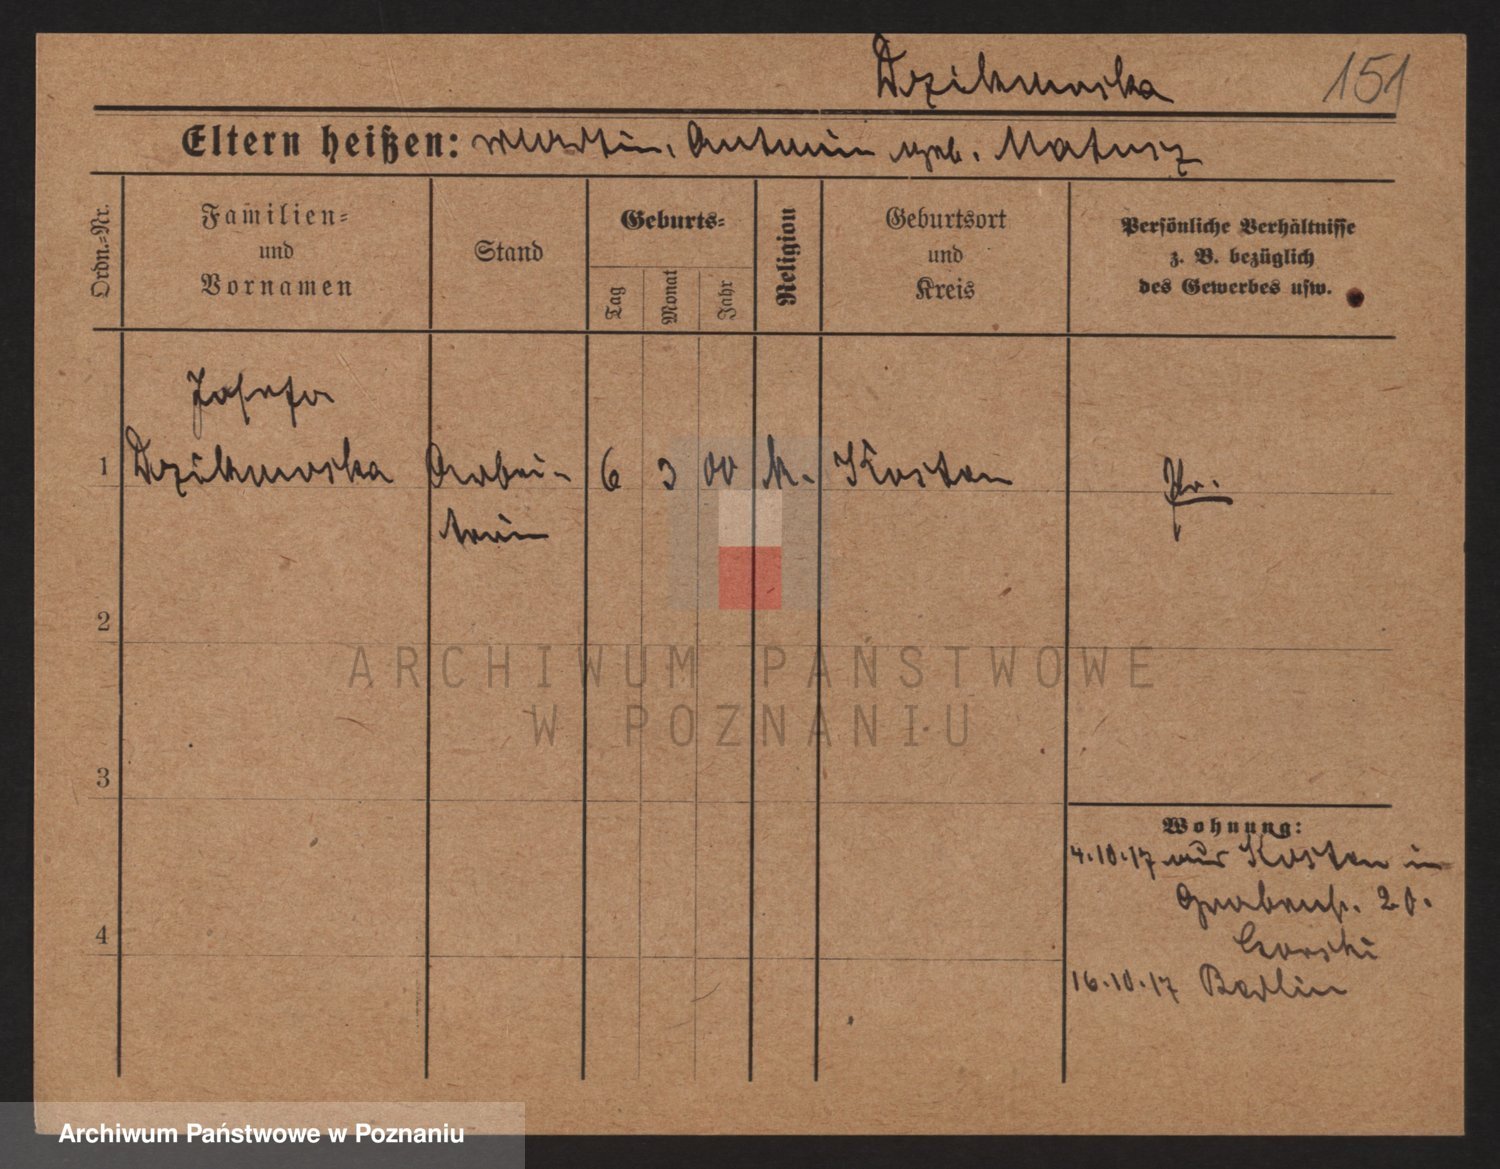 Dzikowska 151
Eltern heißen: Martin, Antonin geb. Matusz
Ordn.=Nr.
Familien=
und
Vornamen
Stand
Geburts=
Tag
Monat
Jahr
Religion
Geburtsort
und
Kreis
Persönliche Verhältnisse
z. B. bezüglich
des Gewerbes usw.
Josefa
1 Dzikowska Arbei- 6 3 00 k. Kosten Pr.
terin
2
ARCHIWUM PAŃSTWOWE
W POZNANIU
3
Wohnung:
4.10.17 aus Kosten in
Grabenstr. 20.
4
16.10.17 Berlin
Archiwum Państwowe w Poznaniu